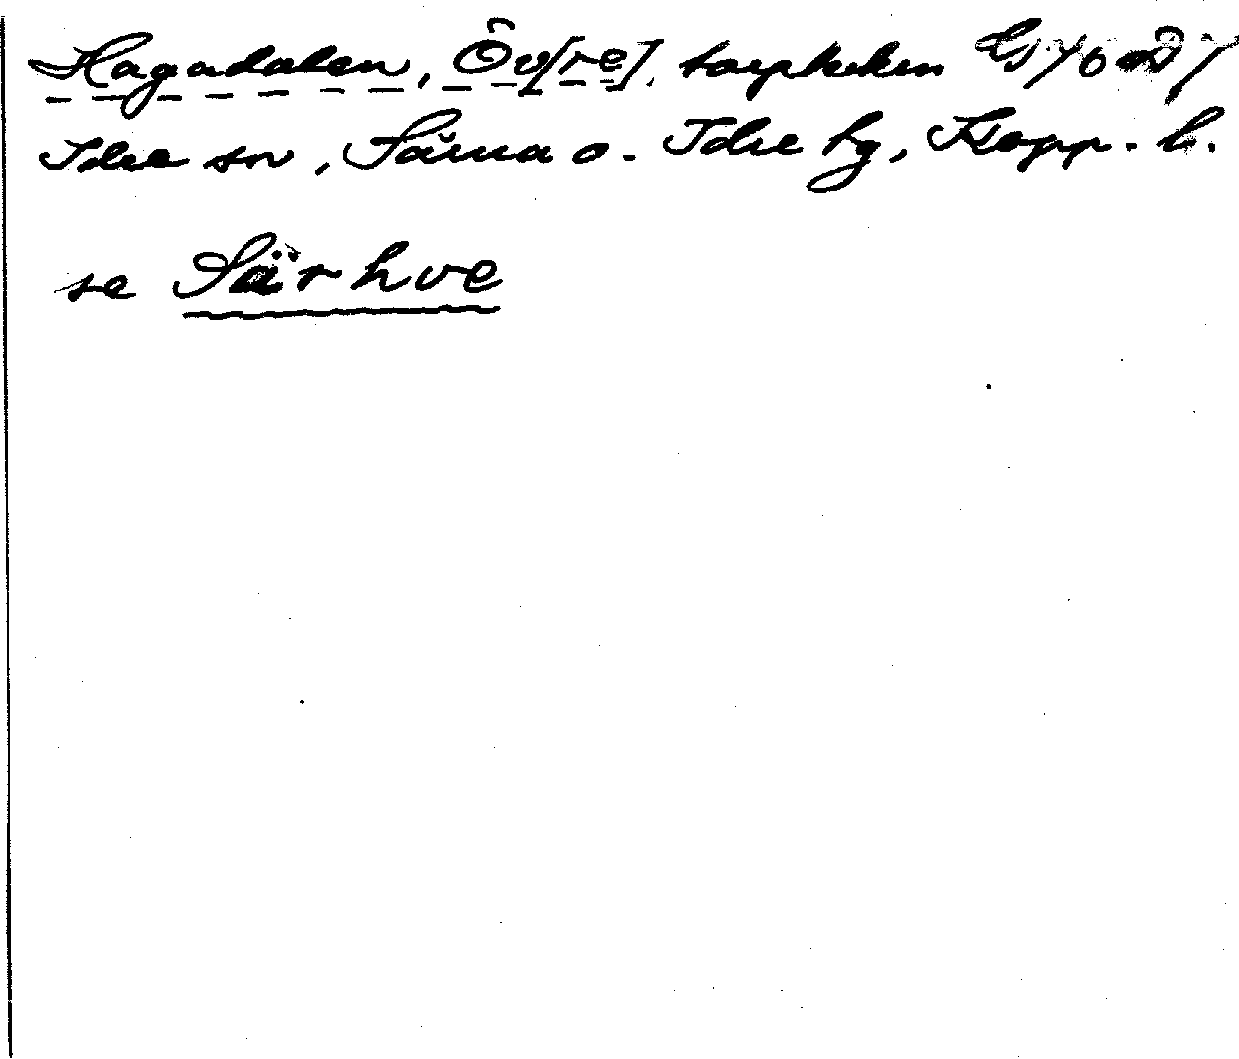 Hagadalen, Öv[re],
Idre sn, Särna o. Idre tg, Kopp. l.
se Särhve